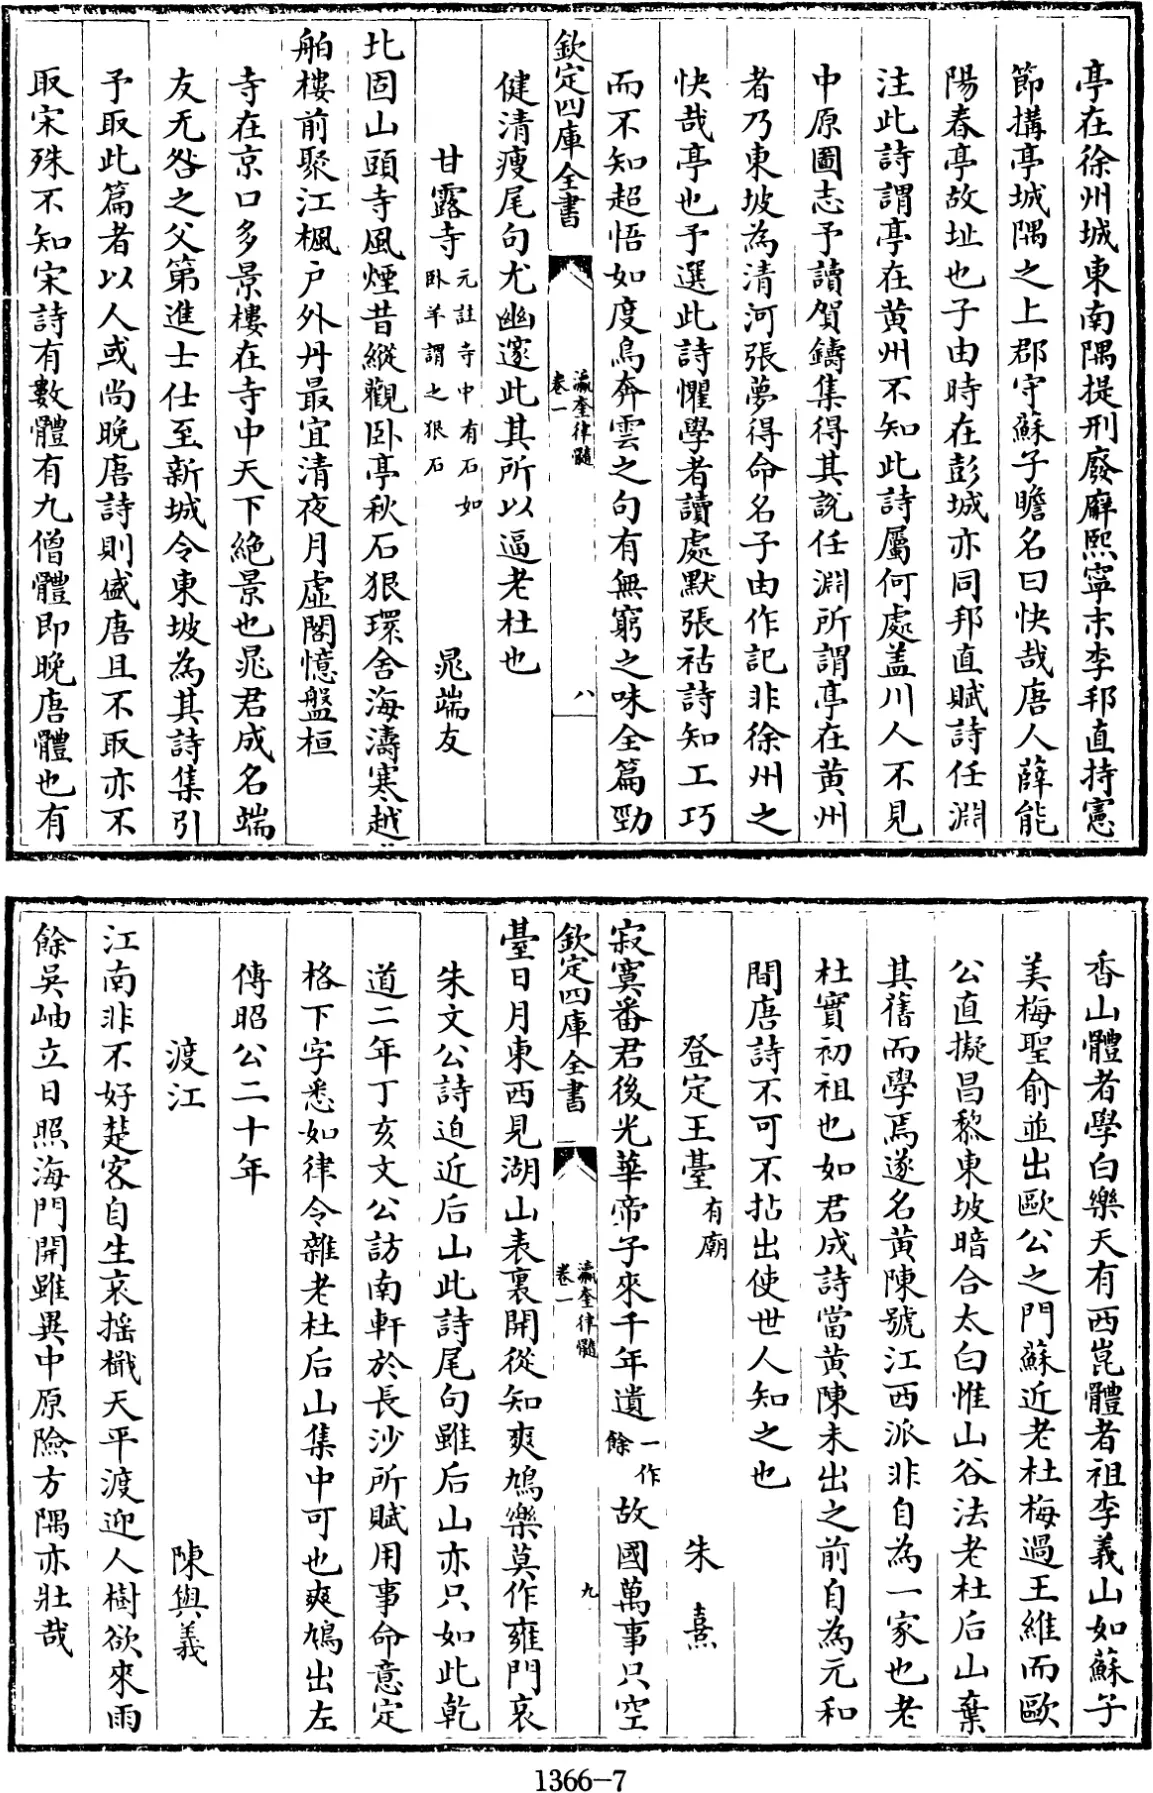 亭在徐州城東南隅提刑廢廨熙寧末李邦直持憲
節搆亭城隅之上郡守蘇子瞻名曰快哉唐人薛能
陽春亭故址也子由時在彭城亦同邦直賦詩任淵
注此詩謂亭在黄州不知此詩屬何處盖川人不見
中原圖志予讀賀鑄集得其説任淵所謂亭在黄州
者乃東坡為清河張夢得命名子由作記非徐州之
快哉亭也予選此詩懼學者讀處默張祜詩知工巧
而不知超悟如度鳥奔雲之句有無窮之味全篇勁
欽定四庫全書
瀛奎律髓
卷一
八
健清瘦尾句尤幽邃此其所以逼老杜也
甘露寺
元註寺中有石如
臥羊謂之狠石
晁端友
北固山頭寺風煙昔縱觀臥亭秋石狠環舍海濤寒越
舶樓前聚江楓户外丹最宜清夜月虛閣憶盤桓
寺在京口多景樓在寺中天下絶景也晁君成名端
友无咎之父第進士仕至新城令東坡為其詩集引
予取此篇者以人或尚晚唐詩則盛唐且不取亦不
取宋殊不知宋詩有數體有九僧體即晚唐體也有
香山體者學白樂天有西崑體者祖李義山如蘇子
美梅聖俞並出歐公之門蘇近老杜梅過王維而歐
公直擬昌黎東坡暗合太白惟山谷法老杜后山棄
其舊而學焉遂名黄陳號江西派非自為一家也老
杜實初祖也如君成詩當黄陳未出之前自為元和
間唐詩不可不拈出使世人知之也
登定王臺
有廟
朱熹
寂寞番君後光華帝子來千年遺
一作
餘
故國萬事只空
欽定四庫全書
瀛奎律髓
卷一
九
臺日月東西見湖山表裏開從知爽鳩樂莫作雍門哀
朱文公詩迫近后山此詩尾句雖后山亦只如此乾
道二年丁亥文公訪南軒於長沙所賦用事命意定
格下字悉如律令雜老杜后山集中可也爽鳩出左
傳昭公二十年
渡江
陳與義
江南非不好楚客自生哀摇檝天平渡迎人樹欲來雨
餘吳岫立日照海門開雖異中原險方隅亦壯哉
1366-7